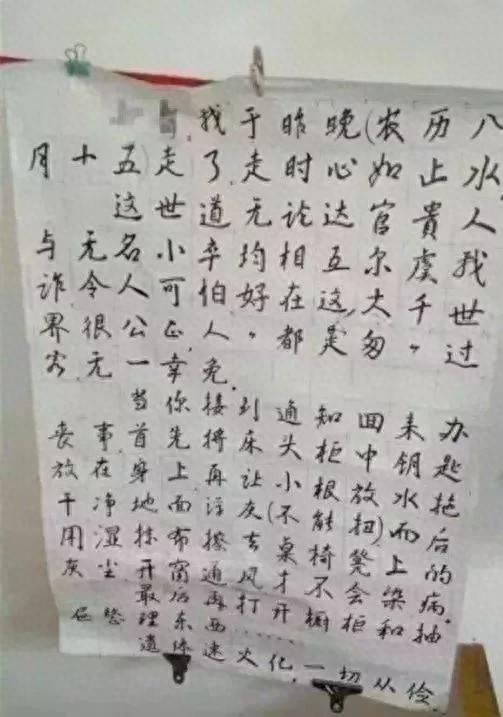 我于昨晚(农历八
月十五)走了,走时心如止水,
这世道无论达官贵人
与无名小卒均相互尔虞我
诈,令人可怕,好在这大千世
界很公正,人人都是匆匆过
客,无一幸免.
当你接到通知回来办
丧事首先将床头柜中钥匙
放在身上再让小根放水拖
干净地面浮灰(不能扭)而后
用湿抹布擦去桌椅凳上的
灰尘开窗通风才不会染病.
最后再打开橱柜和抽
屉理东西……
遗体速火化,一切从俭.